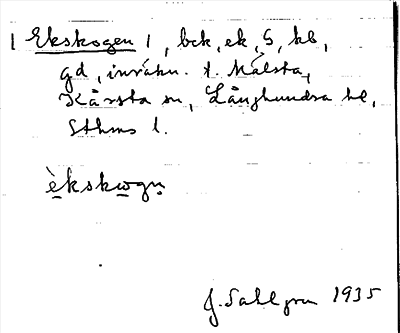 | Ekskogen |, bek, ek, S, hb,
gd, inräkn. t. Målsta,
Kårsta sn, Långhundra hd,
Sthms l.
èkskωgn̥
J. Sahlgren 1935